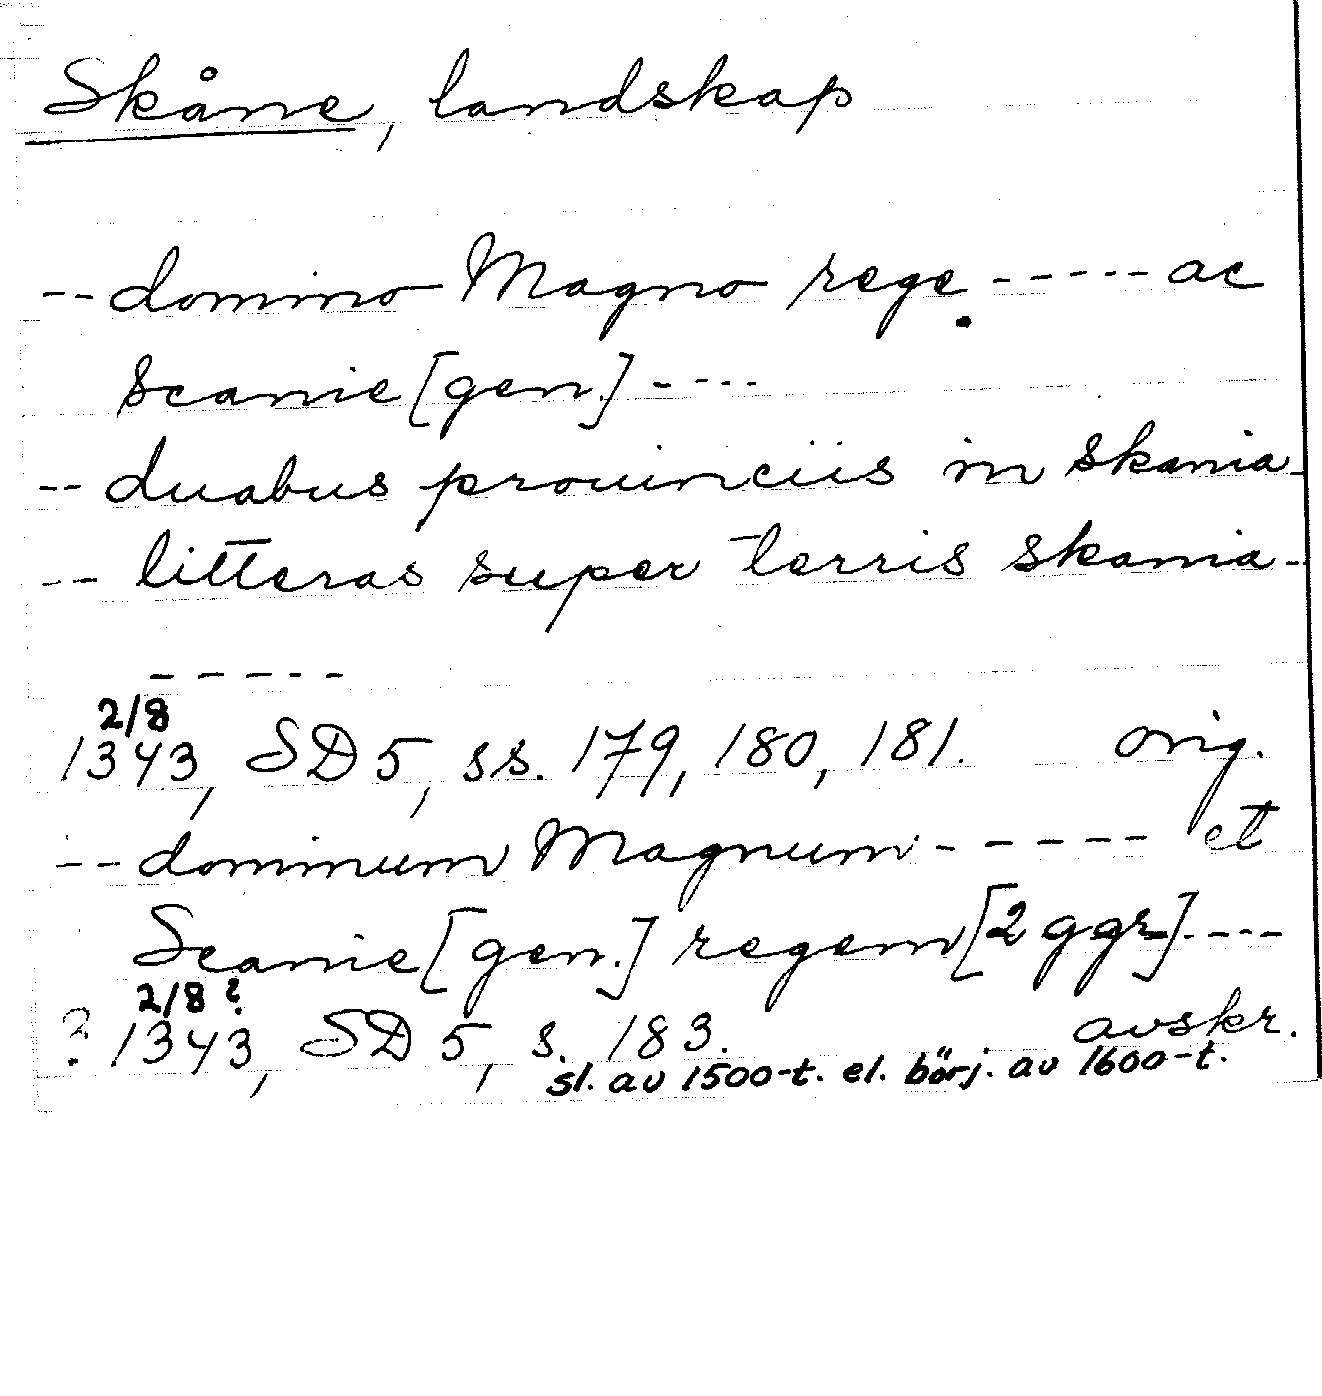 Skåne, landskap
-- domino Magno rege ----- ac
Scanie [gen.] ----
-- duabus prouinciis in skania -
-- litteras super terris skania -
-----
2/8
1343, SD 5, ss. 179, 180, 181. orig.
-- dominum Magnum ----- et
Scanie [gen.] regem [2 ggr] ----
2/8 ?
? 1343, SD 5, s. 183. avskr.
sl. av 1500-t. el. börj. av 1600-t.